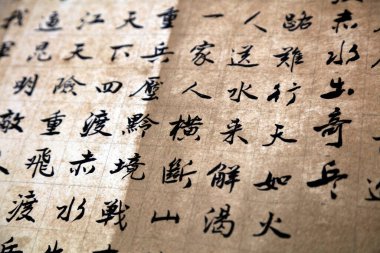 赤水出奇兵
路難行天如火
人送水来解渴
一家人橫斷山
重兵壓黔境戰
天下四渡赤水
江天險重飛渡兵
逼昆明敵
我